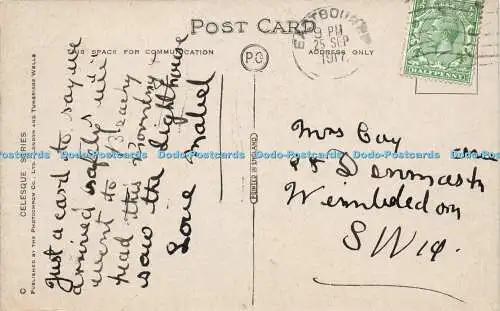 POST CARD
THIS SPACE FOR COMMUNICATION
ADDRESS ONLY
PO
EASTBOURNE
9 PM
25 SEP
1917
HALFPENNY
C
CELESQUE SERIES
PUBLISHED BY THE PHOTOCHROM CO., LTD., LONDON AND TUNBRIDGE WELLS
PRINTED IN ENGLAND
Just a card to say we
arrived safely will
went to Beachy
head this morning +
saw the Lighthouse
Love Mabel
Mrs Guy
Wimbledon
S W 19.
Dodo-Postcards Dodo-Postcards Dodo-Postcards Dodo-Postcards Dodo-Postcards